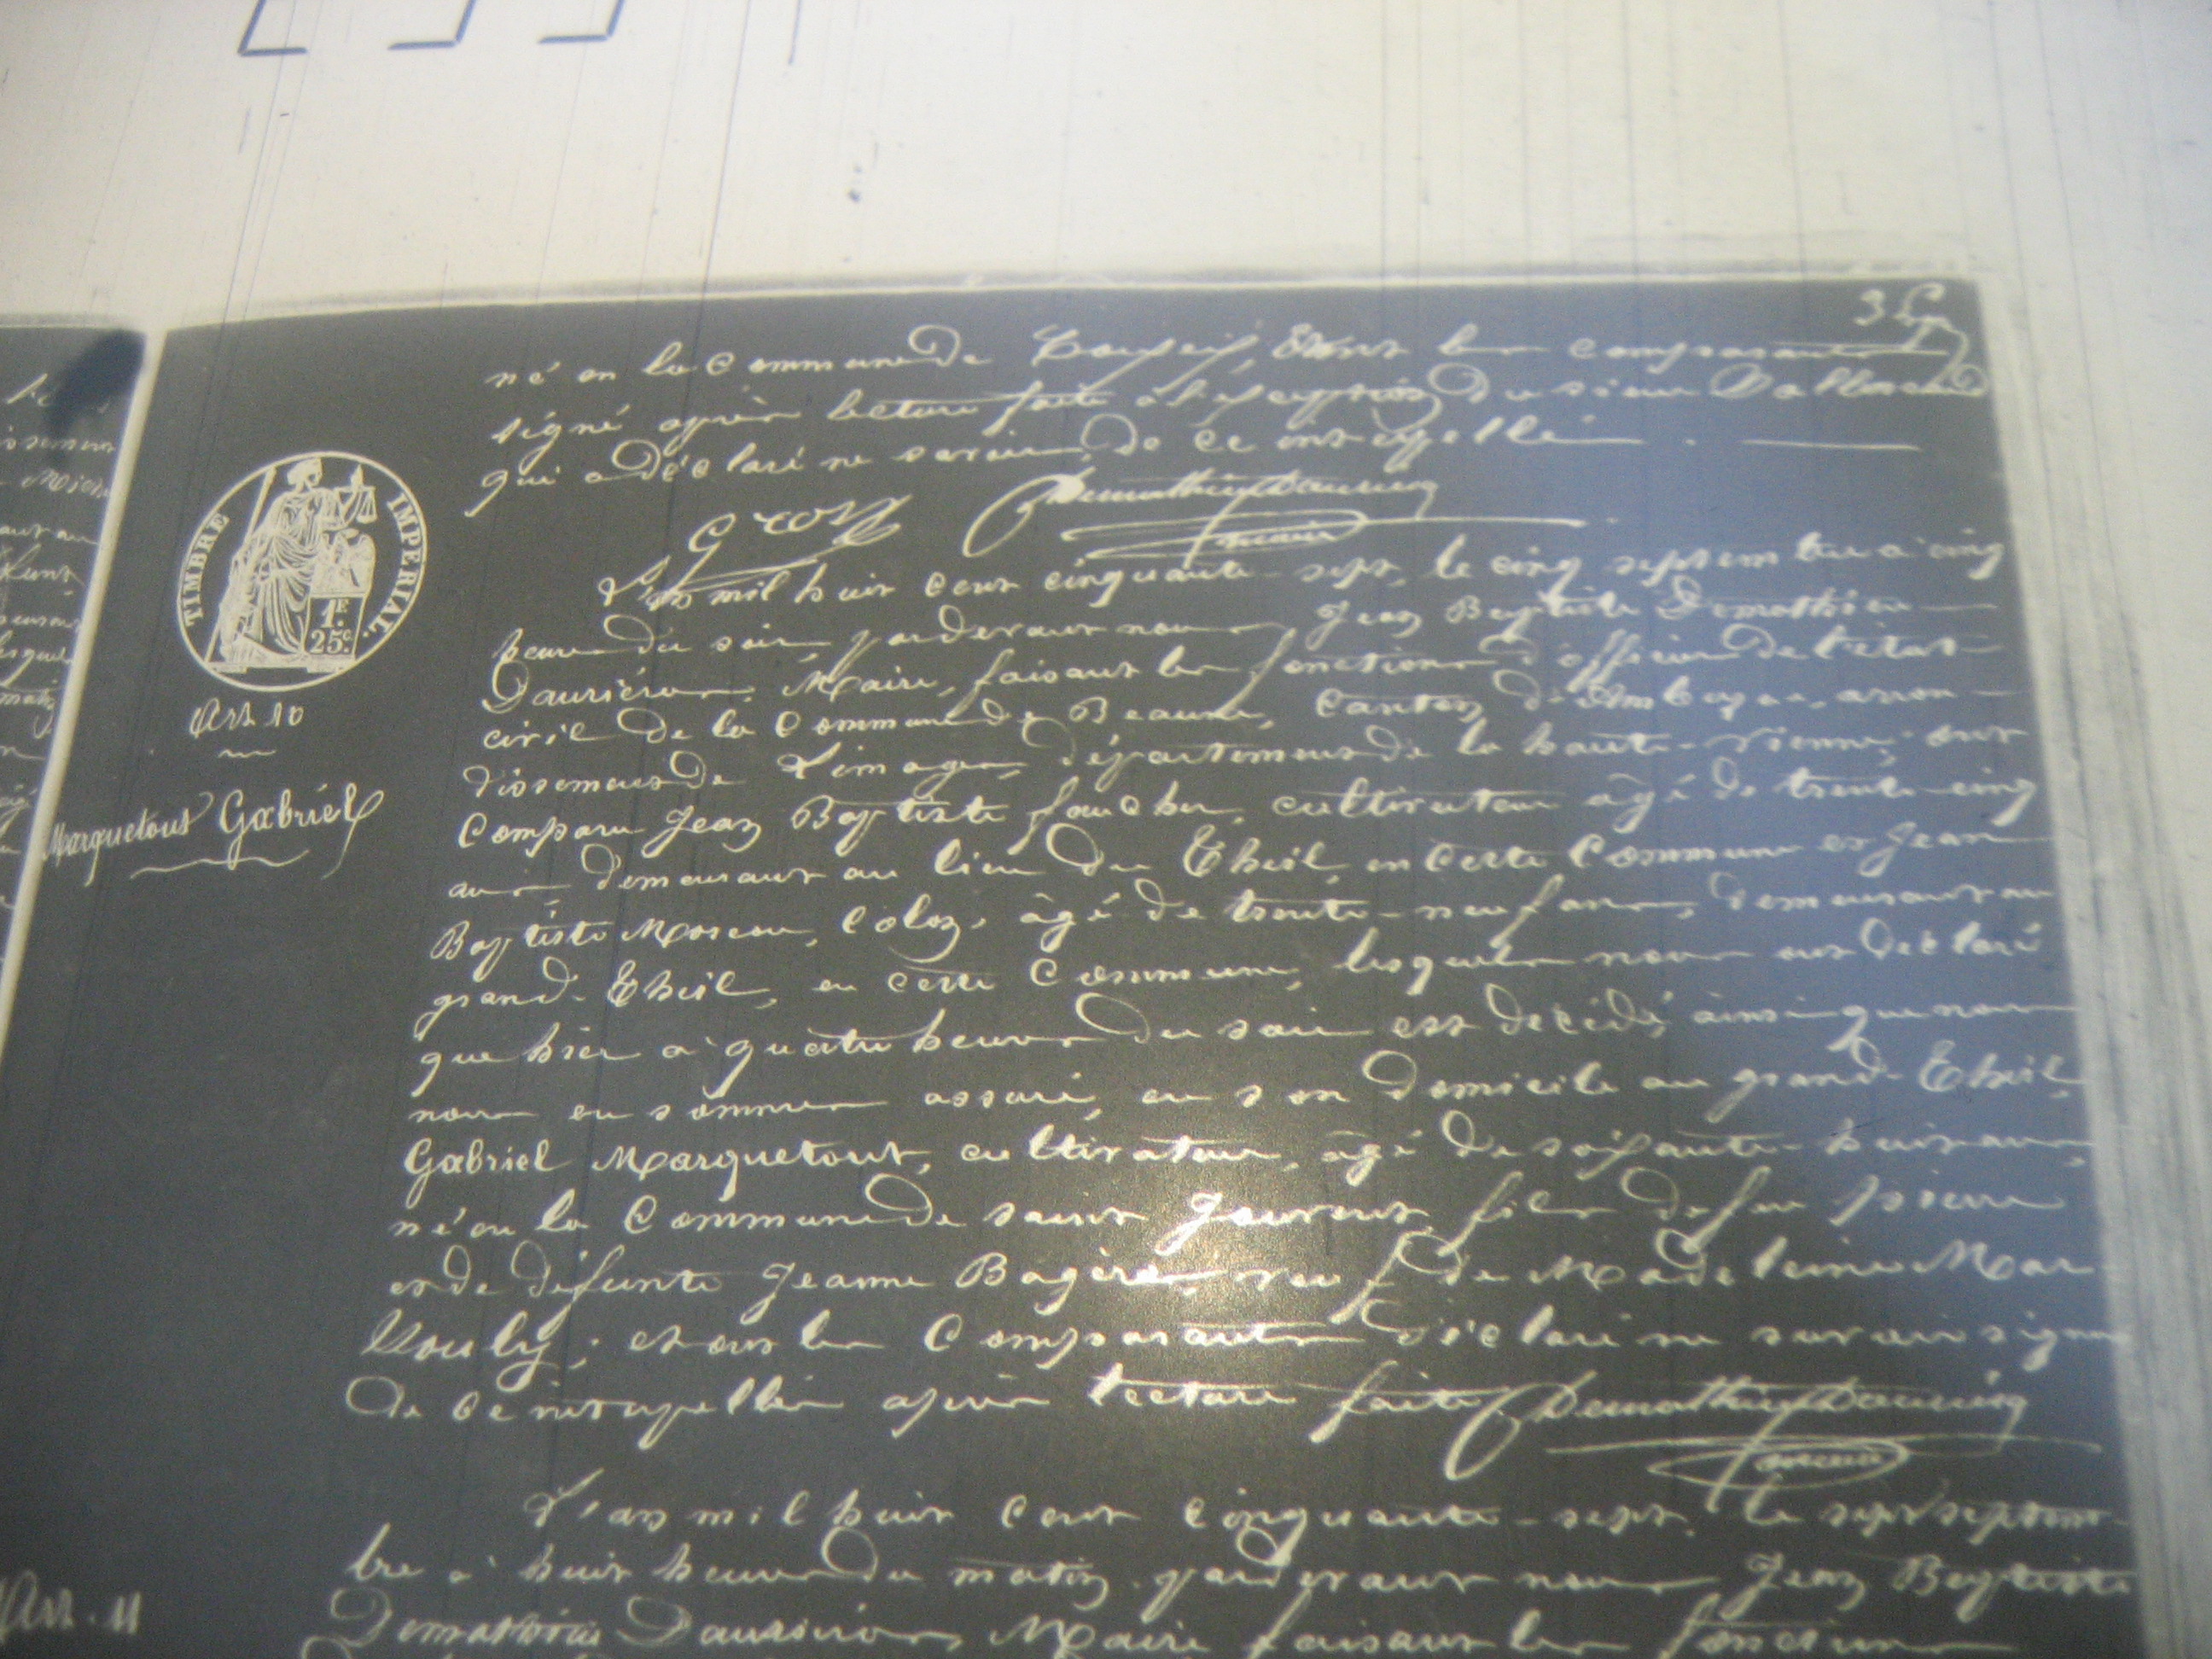 3
né en la Commune de, Et ont les comparants
signé après lecture faite à l'exception du sieur
qui a déclaré ne savoir, de ce interpellé
TIMBRE IMPÉRIAL.
1F.
25c.
Gros Demathieu Daurière
maire
Art 10
Marquetout Gabriel
L'an mil huit cent cinquante-sept, le cinq septembre à cinq
heures du soir, pardevant nous Jean Baptiste Demathieu
Daurière, Maire, faisant les fonctions d'officier de l'état
civil de la Commune de Beaune, Canton d'Ambazac, arron-
dissement de Limoges, département de la haute-vienne, ont
Comparu Jean Baptiste faucher, cultivateur âgé de trente-cinq
ans, demeurant au lieu du Theil, en cette Commune et Jean
Baptiste Moreau, Colon, âgé de trente-neuf ans, demeurant au
grand-Theil, en cette Commune, lesquels nous ont déclaré
que hier à quatre heures du soir est décédé, ainsi que nous
nous en sommes assuré, en son domicile au grand-Theil,
Gabriel Marquetout, cultivateur, âgé de soixante-huit ans,
né en la Commune de saint Jouvent, fils de feu pierre
et de défunte Jeanne, veuf de Madeleine Mar
; et ont les Comparants déclaré ne savoir signer
de ce interpellés après lecture faite Demathieu Daurière
maire
Art. 11
L'an mil huit cent cinquante-sept, le sept septem-
bre à huit heures du matin, pardevant nous Jean Baptiste
Demathieu Daurière, Maire faisant les fonctions